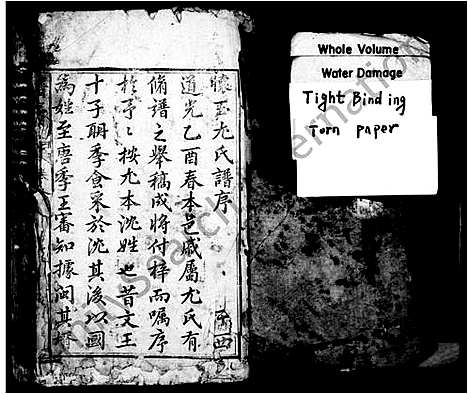 懷玉尤氏譜序
道光乙酉春本邑戚屬尤氏有
脩譜之舉稿成將付梓而囑序
於予予按尤本沈姓也昔文王
十子聃季食采於沈其後以國
為姓至唐季王審知據閩其壻
Whole Volume
Water Damage
Tight Binding
Torn paper